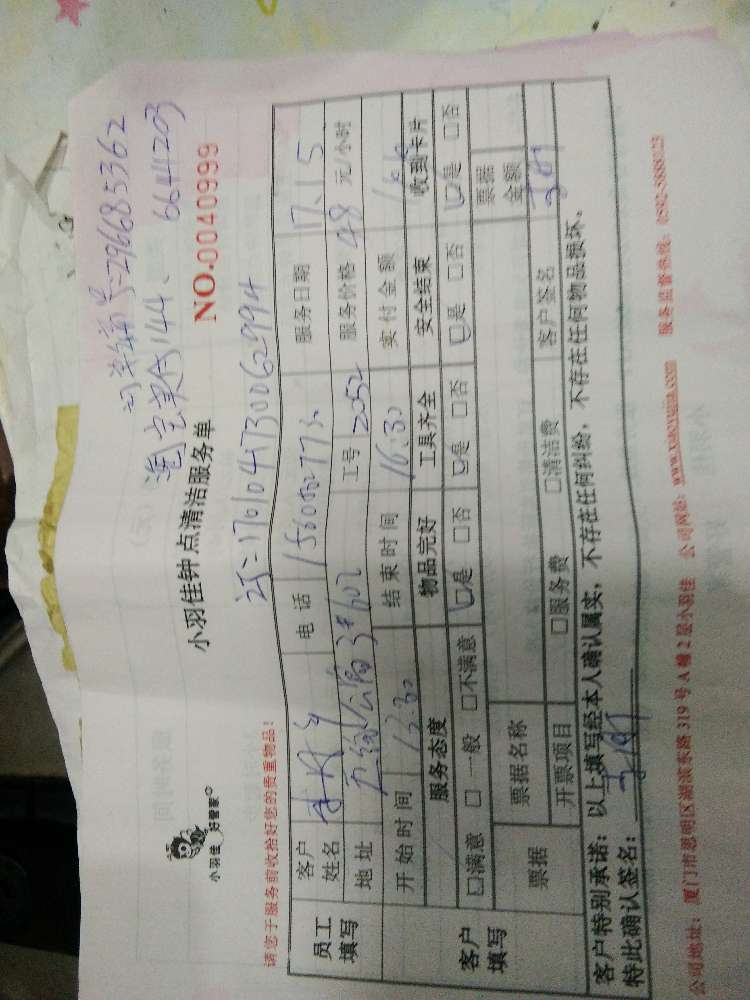 296685362
淘宝美食144、66441203
小羽佳 好管家
小羽佳钟点清洁服务单
NO.0040999
请您于服务前收拾好您的贵重物品!
证=17010417300062994
员工填写
客户姓名
电话
服务日期 17.1.5
地址 3#602
工号 2052
服务价格 48 元/小时
开始时间
结束时间 16:30
实付金额
客户填写
服务态度
物品完好
工具齐全
安全结束
收到卡片
☑满意 □一般 □不满意
☑是 □否
☑是 □否
☑是 □否
☑是 □否
票据
票据名称
票据金额
开票项目
□服务费
□清洁费
客户签名
客户特别承诺:以上填写经本人确认属实,不存在任何纠纷,不存在任何物品损坏。
特此确认签名:
公司地址:厦门市思明区湖滨东路319号A幢2层小羽佳 公司网站:www.xiaoyujia.com 服务监督热线:0592-5888123